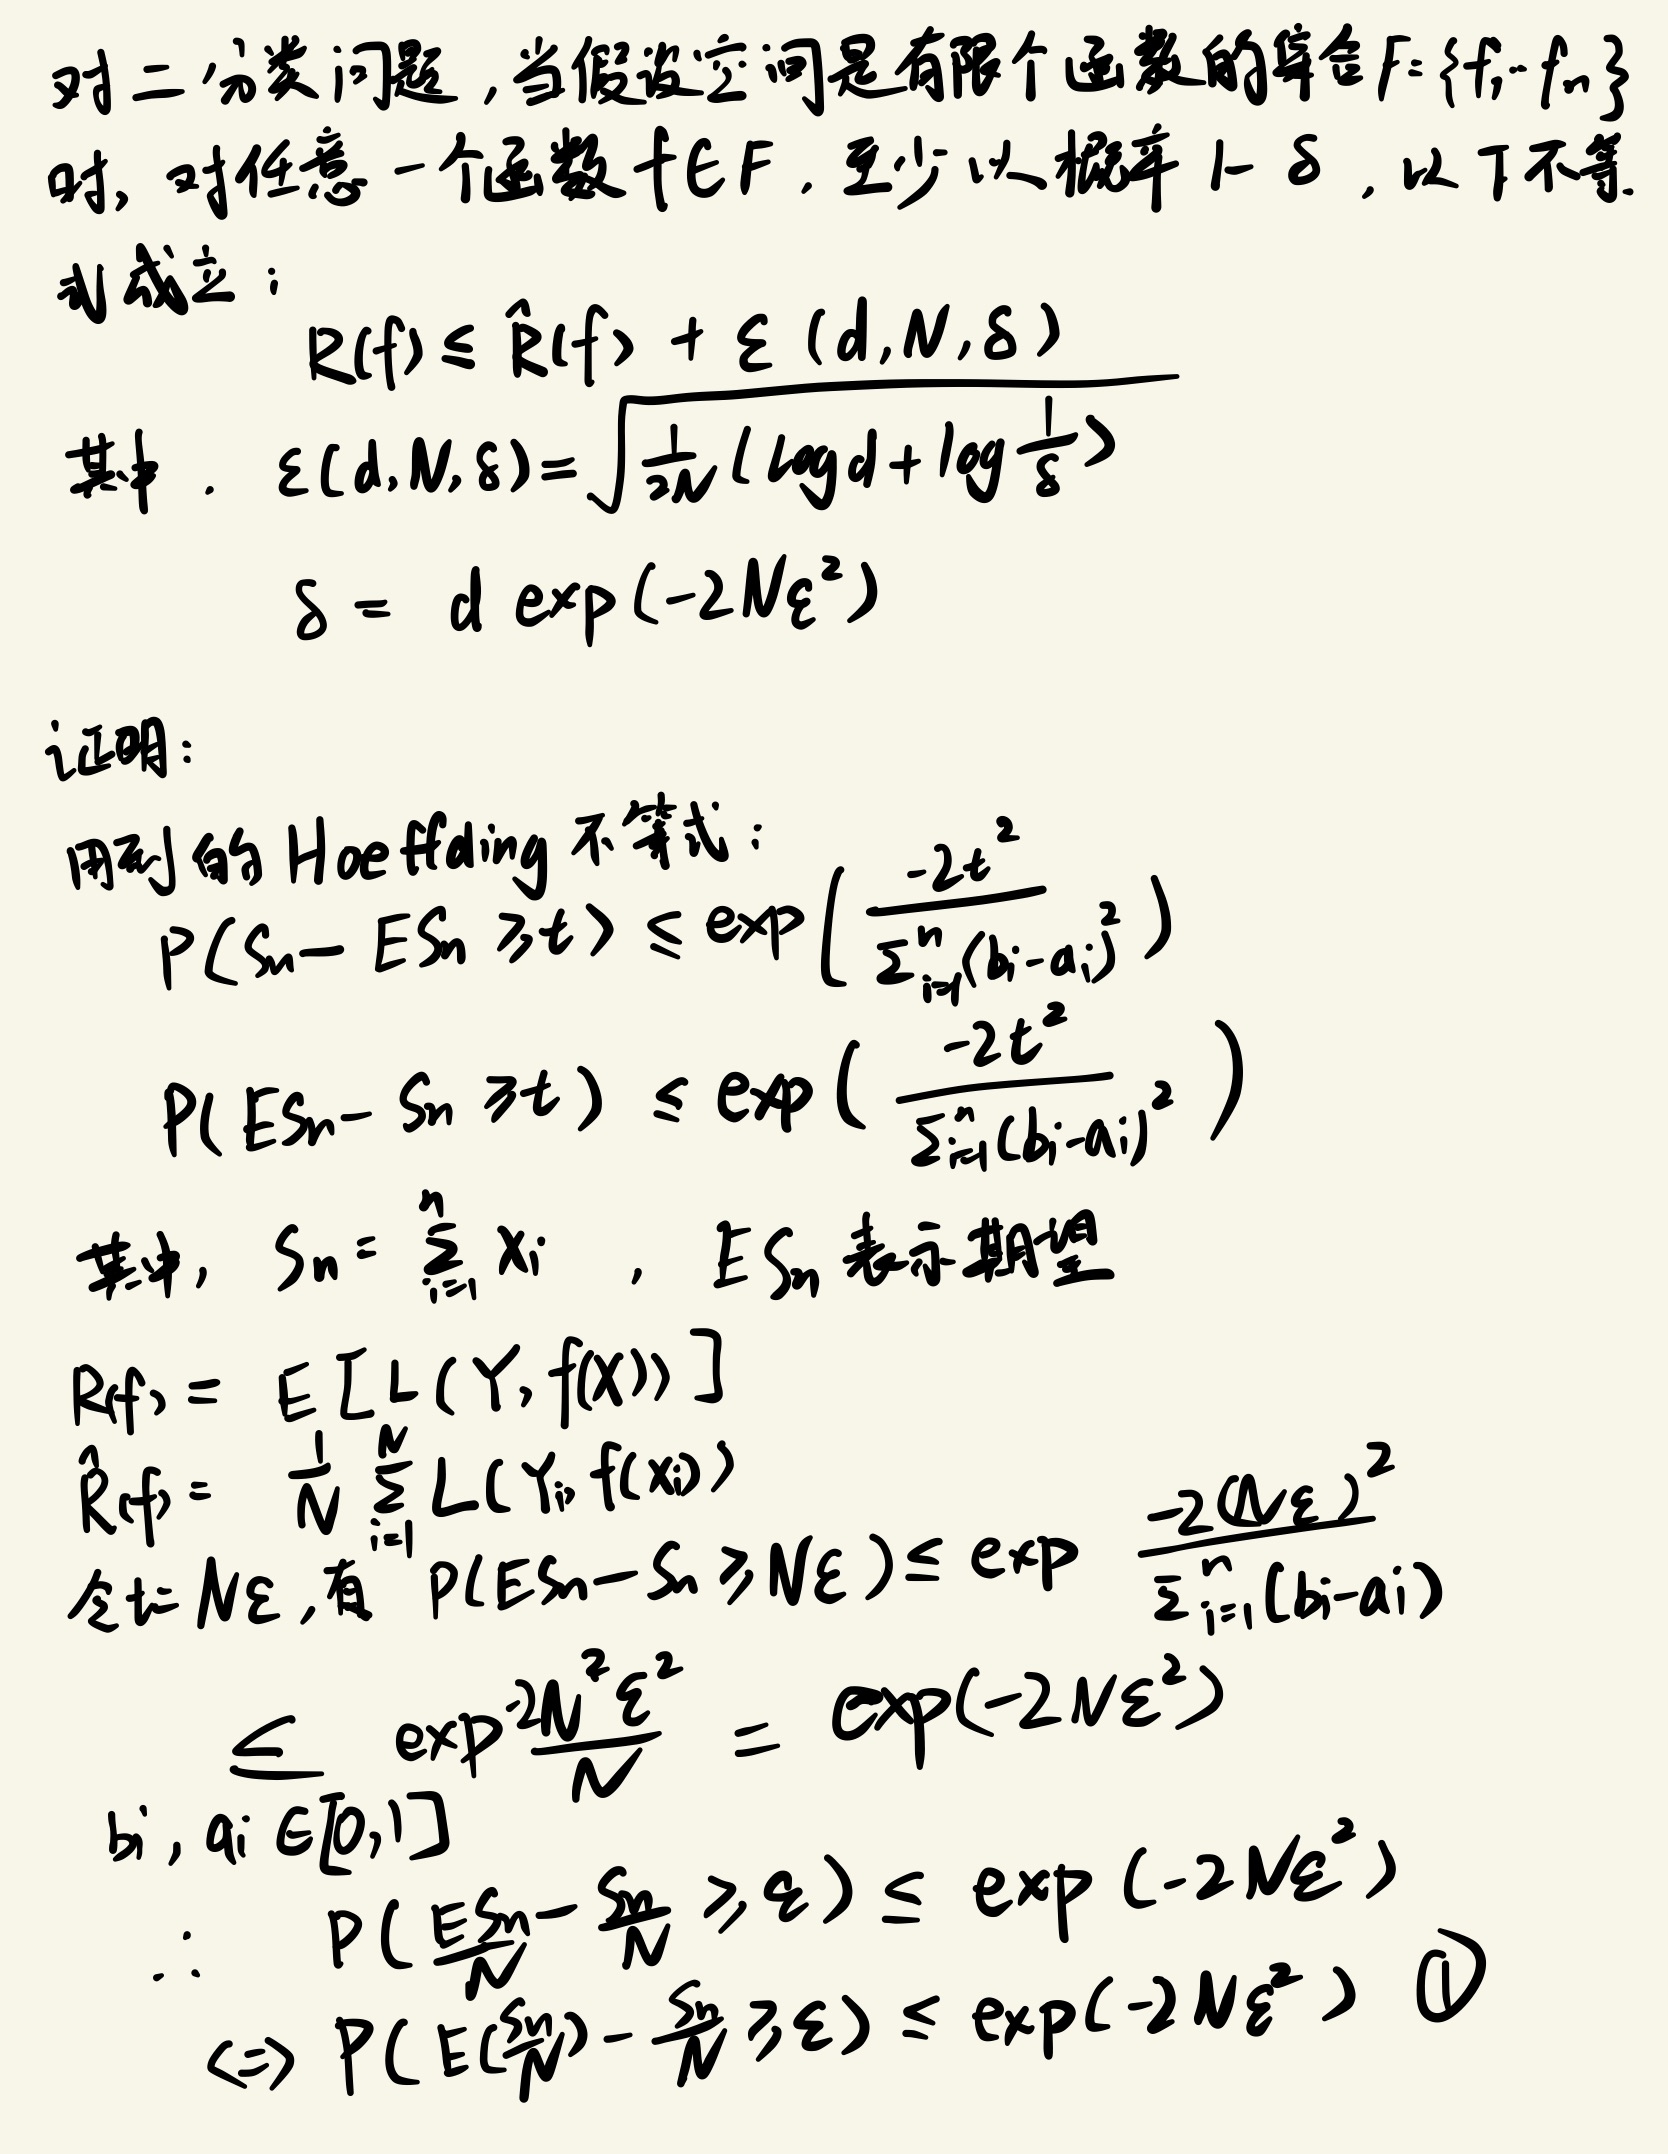 对二分类问题,当假设空间是有限个函数的集合F={f,..fn}
时,对任意一个函数f∈F,至少以概率1-δ,以下不等
式成立:
R(f)≤R̂(f)+ε(d,N,δ)
其中. ε(d,N,δ)=√(1/2N (logd+log 1/δ))
δ = d exp(-2Nε²)
证明:
用到的Hoeffding不等式:
P(Sn-ESn≥t)≤exp(-2t²/Σⁿᵢ₌₁(bi-ai)²)
P(ESn-Sn≥t)≤exp(-2t²/Σⁿᵢ₌₁(bi-ai)²)
其中, Sn=Σⁿᵢ₌₁ Xi , ESn表示期望
R(f)= E[L(Y,f(X))]
R̂(f)= 1/N Σᴺᵢ₌₁ L(Yi,f(xi))
令t=Nε,有 P(ESn-Sn≥Nε)≤exp -2(Nε)²/Σⁿᵢ₌₁(bi-ai)
≤ exp -2N²ε²/N = exp(-2Nε²)
bi,ai∈[0,1]
∴ P(ESn/N - Sn/N ≥ε)≤ exp(-2Nε²)
<=> P(E(Sn/N) - Sn/N ≥ε)≤ exp(-2Nε²) ①